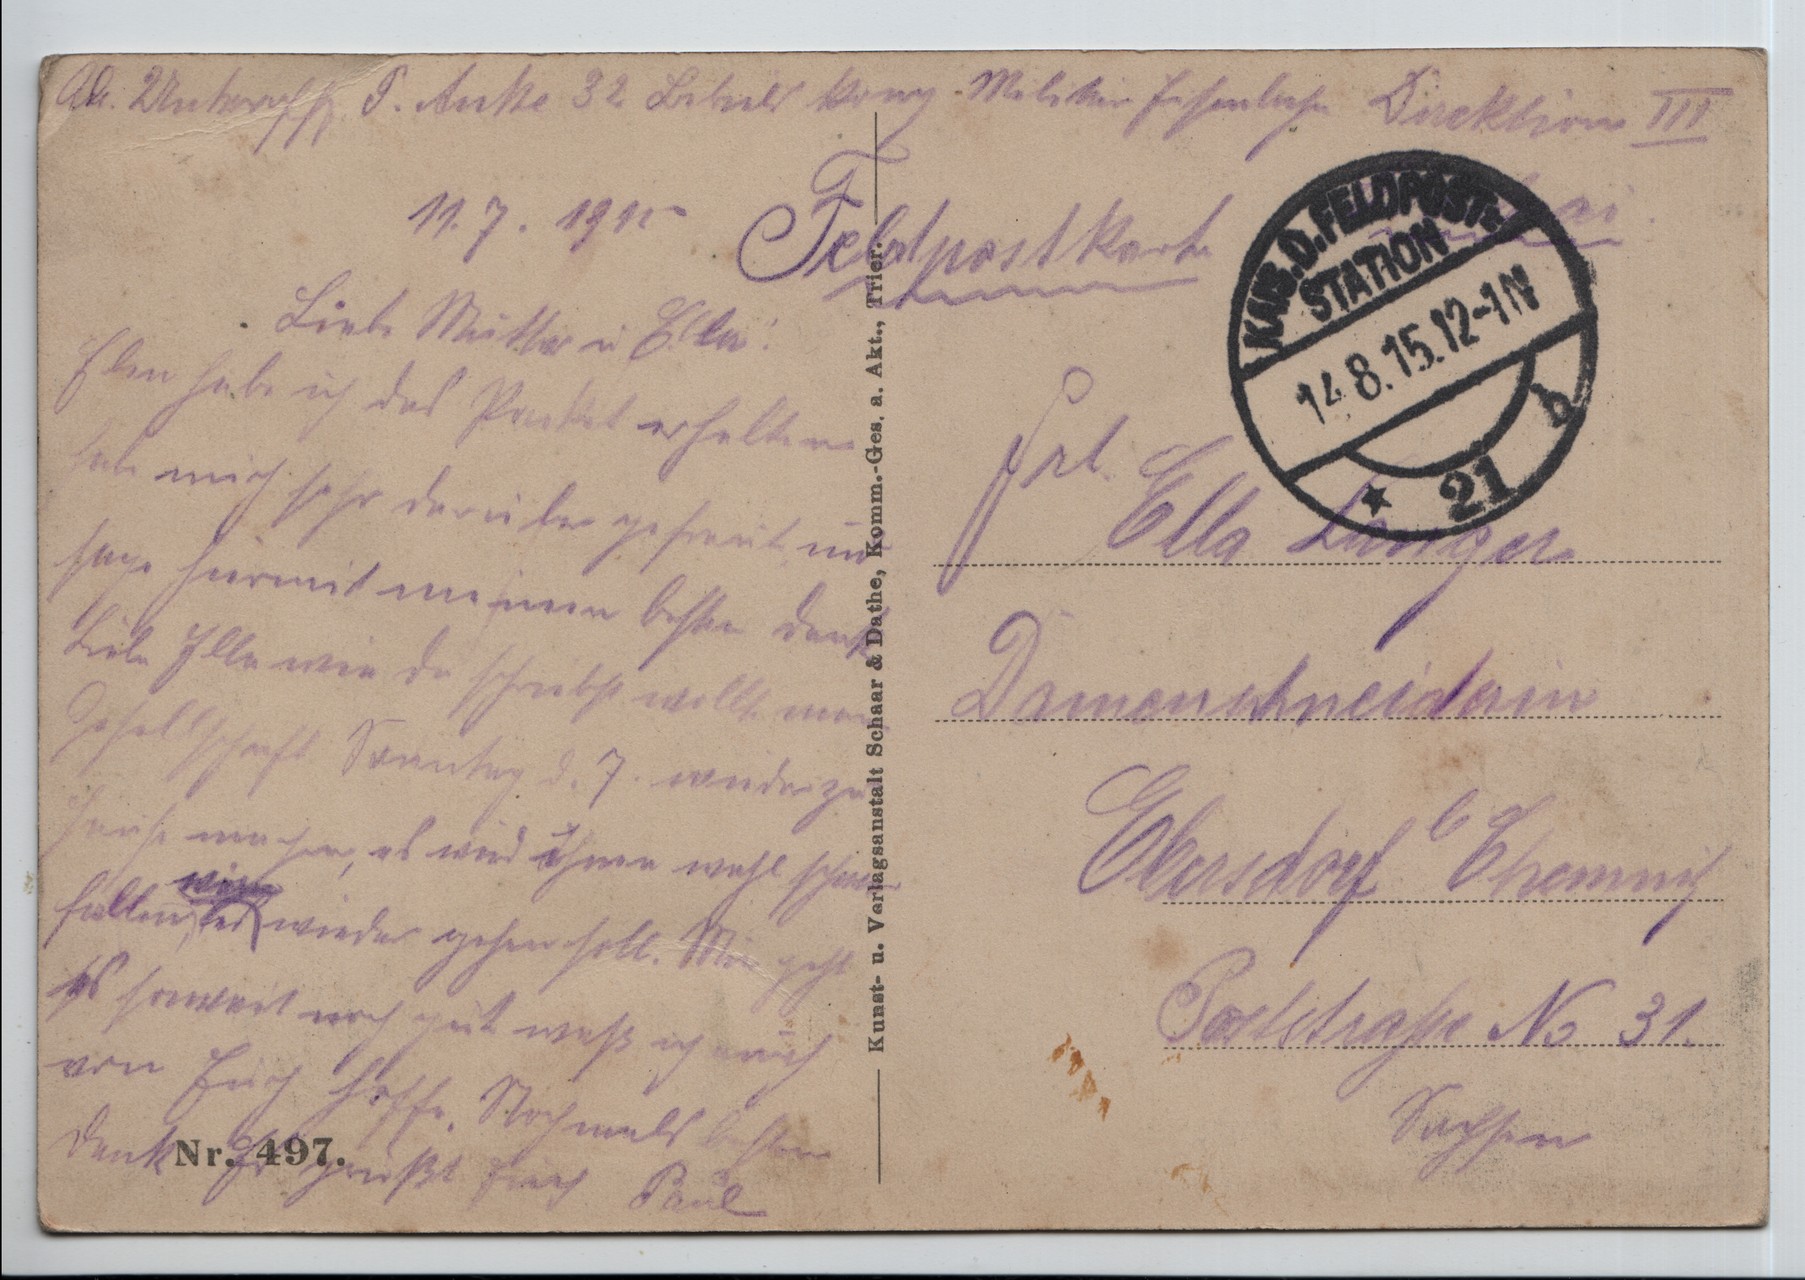 Ad. Unteroff. P. Anke 32 Betriebs Komp. Militär Eisenbahn Direktion III
11.7.1915
Feldpostkarte
KAIS.D.FELDPOST-
STATION
14.8.15.12-1N
b
* 21
Liebe Mutter u Ella!
Eben habe ich das Packet erhalten
habe mich sehr darüber gefreut und
sage hiermit meinen besten Dank
Liebe Ella wie du schreibst wollte
Gesellschaft Sonntag d. 7. wieder zu
Hause machen, es wird Ihnen wohl schwer
fallen, wieder gehen soll. Mir geht
es soweit noch gut was ich auch
von Euch hoffe. Nochmals besten
Dank Es grüßt Euch Paul
Nr. 497.
Kunst- u. Verlagsanstalt Schaar & Dathe, Komm.-Ges. a. Akt., Trier.
Frl.
Ella Langer
Damenschneiderin
Ebersdorf b Chemnitz
Poststraße No 31.
Sachsen